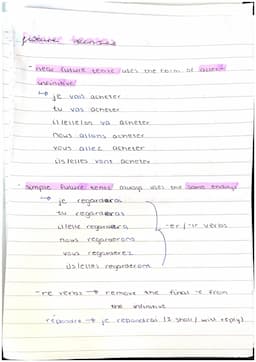 future tenses
- near future tense uses the term of aller +
infinitive
↳ je vais acheter
tu vas acheter
il/elle/on va acheter
nous allons acheter
vous allez acheter
ils/elles vont acheter
- simple future tense always uses the same endings
↳ je regarderas
tu regarderas
il/elle regardera
nous regarderons
vous regarderez
ils/elles regarderont
-er / -ir verbs
-re verbs → remove the final -e from
the infinitive
répondre → je répondrai (I shall / will reply)